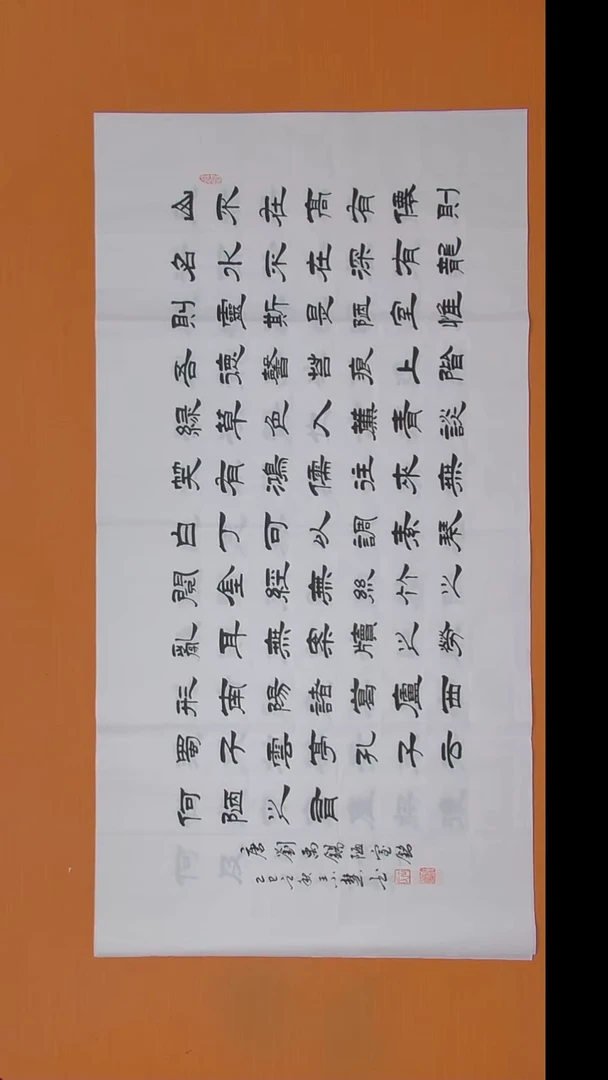 山不在高有僊則
名水不在深有龍
則靈斯是陋室惟
吾德馨苔痕上階
緑草色入簾青談
笑有鴻儒往來無
白丁可以調素琴
閱金經無絲竹之
亂耳無案牘之勞
形南陽諸葛廬西
蜀子雲亭孔子云
何陋之有
唐劉禹錫陋室銘
乙巳之秋